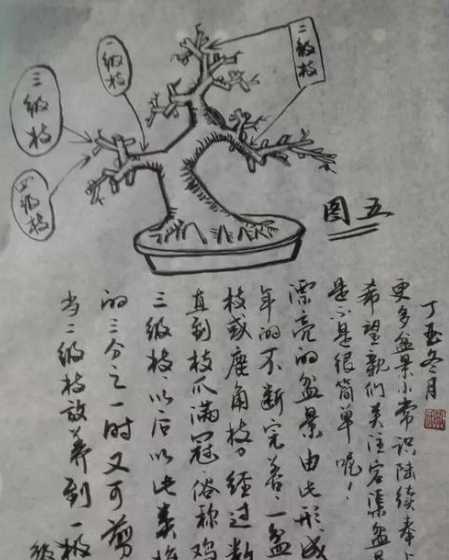 三级枝
一级枝
二级枝
四级枝
图五
级
当二级枝放养到一级
的三分之一时又可剪
三级枝，以后以此类推
直到枝爪满冠俗称鸡
枝或鹿角枝。经过数
年的不断完善，一盆
漂亮的盆景由此形成
是不是很简单呢！
希望亲们关注容渠盆
更多盆景小常识陆续奉上
丁酉冬月